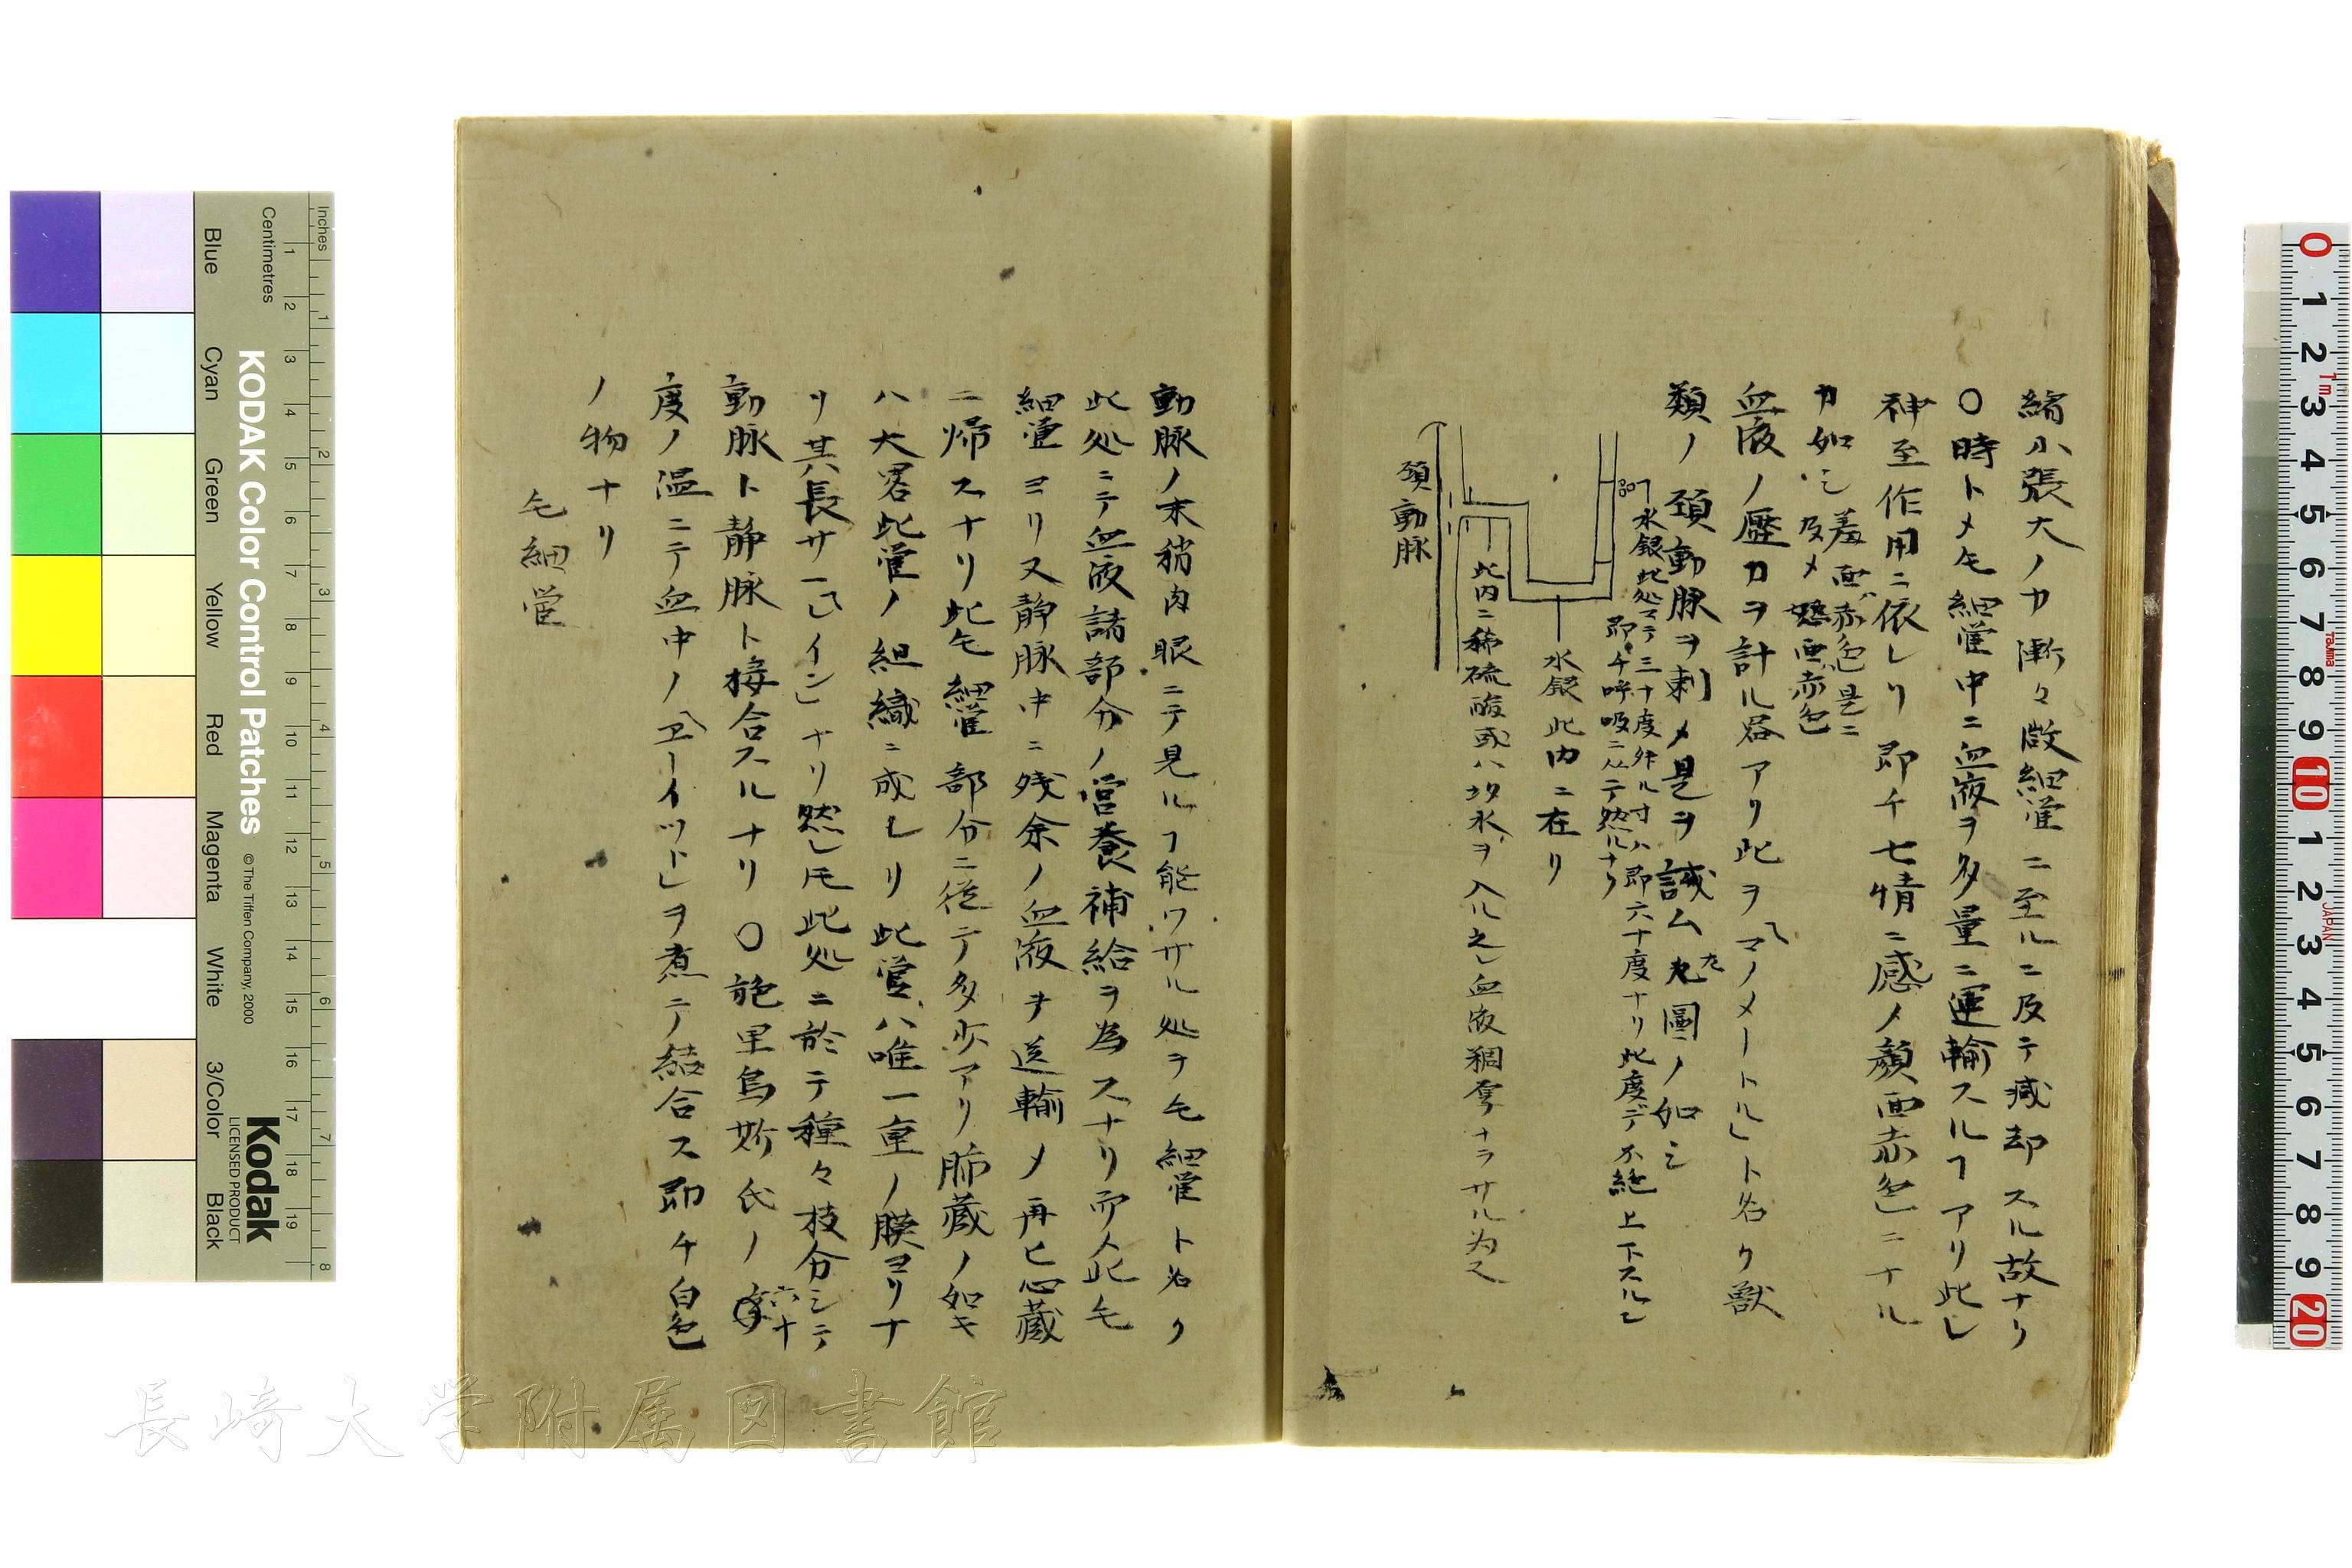 縮小張大ノ力漸々微細管ニ至ルニ及テ減却スル故ナリ
〇時トメ毛細管中ニ血液ヲ多量ニ運輸スルヿアリ此レ
神至作用ニ依レリ即チ七情ニ感ノ顔面赤色ニナル
カ如シ羞面赤色是ニ
及メ
面赤色
血液ノ歴力ヲ計ル器アリ此ヲ「マノメートル」ト名ク獣
類ノ頚動脉ヲ刺メ是ヲ試ム左圖ノ如シ
水銀此処マテ三十度外ル寸ハ即六十度ナリ此度デ不絶上下スルヿ
即チ呼吸ニ从テ然ルナリ
水銀此内ニ在リ
此内ニ稀硫酸或ハ水ヲ入ル之レ血液稠厚ナラサル為メ
頚動脉
動脉ノ末稍肉眼ニテ見ルヿ能ワサル処ヲ毛細管ト名ク
此処ニテ血液諸部分ノ営養補給ヲ為スナリ而〆此毛
細管ヨリ又静脉中ニ残余ノ血液ヲ送輸メ再ヒ心蔵
ニ帰スナリ此毛細管部分ニ従テ多少アリ肺蔵ノ如キ
ハ大畧此管ノ組織ニ成レリ此管ハ唯一重ノ膜ヨリナ
リ其長サ一「インン」ナリ然レ𪜈此処ニ於テ種々枝分シテ
動脉ト静脉ト接合スルナリ〇
度ノ温ニテ血中ノ「ヱーイット」ヲ煮テ結合ス即チ白色
ノ物ナリ
毛細管
Inches
Centimetres
Blue
Cyan
Green
Yellow
Red
Magenta
White
3/Color
Black
KODAK Color Control Patches
© The Tiffen Company, 2000
Kodak
LICENSED PRODUCT
長崎大学附属図書館